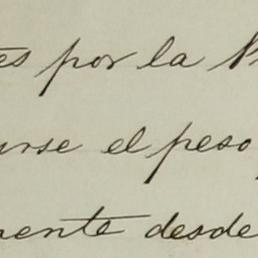 es por la
urse el peso
mente desde